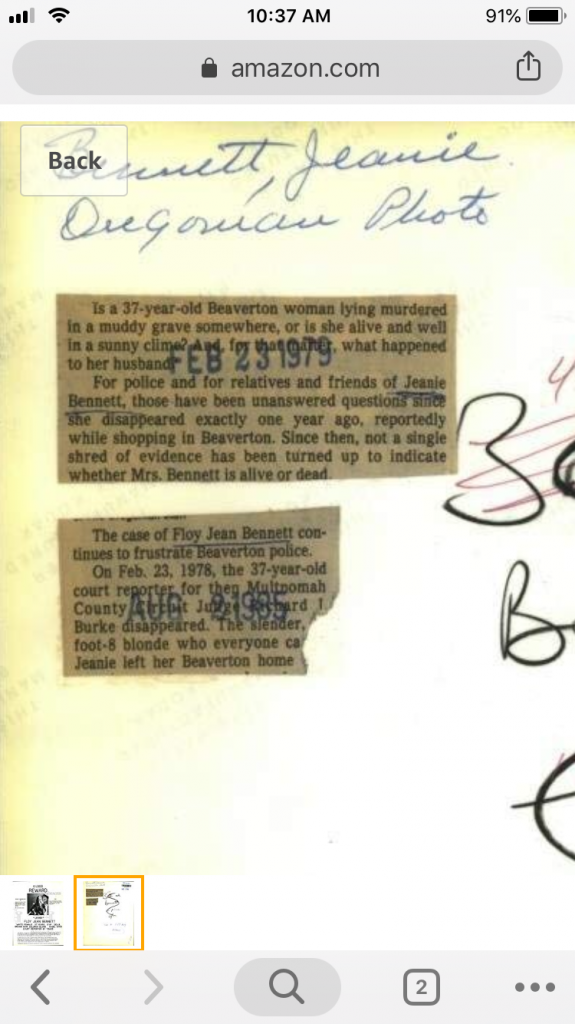 10:37 AM
91%
amazon.com
Back
Bennett, Jeanie
Oregonian Photo
Is a 37-year-old Beaverton woman lying murdered
in a muddy grave somewhere, or is she alive and well
in a sunny clime? And, for that matter, what happened
to her husband?
FEB 23 1979
For police and for relatives and friends of Jeanie
Bennett, those have been unanswered questions since
she disappeared exactly one year ago, reportedly
while shopping in Beaverton. Since then, not a single
shred of evidence has been turned up to indicate
whether Mrs. Bennett is alive or dead.
The case of Floy Jean Bennett con-
tinues to frustrate Beaverton police.
On Feb. 23, 1978, the 37-year-old
court reporter for then Multnomah
County Circuit Judge Richard
Burke disappeared. The slender,
AUG 1985
foot-8 blonde who everyone ca
Jeanie left her Beaverton home
Be
B
REWARD
FLOY JEAN BENNETT
2